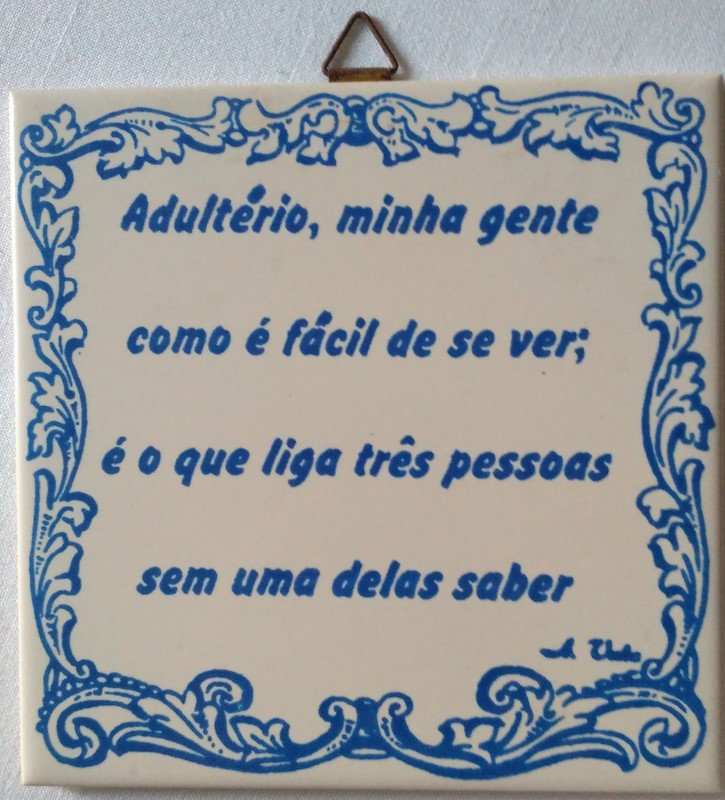 Adultério, minha gente
como é fácil de se ver;
é o que liga três pessoas
sem uma delas saber